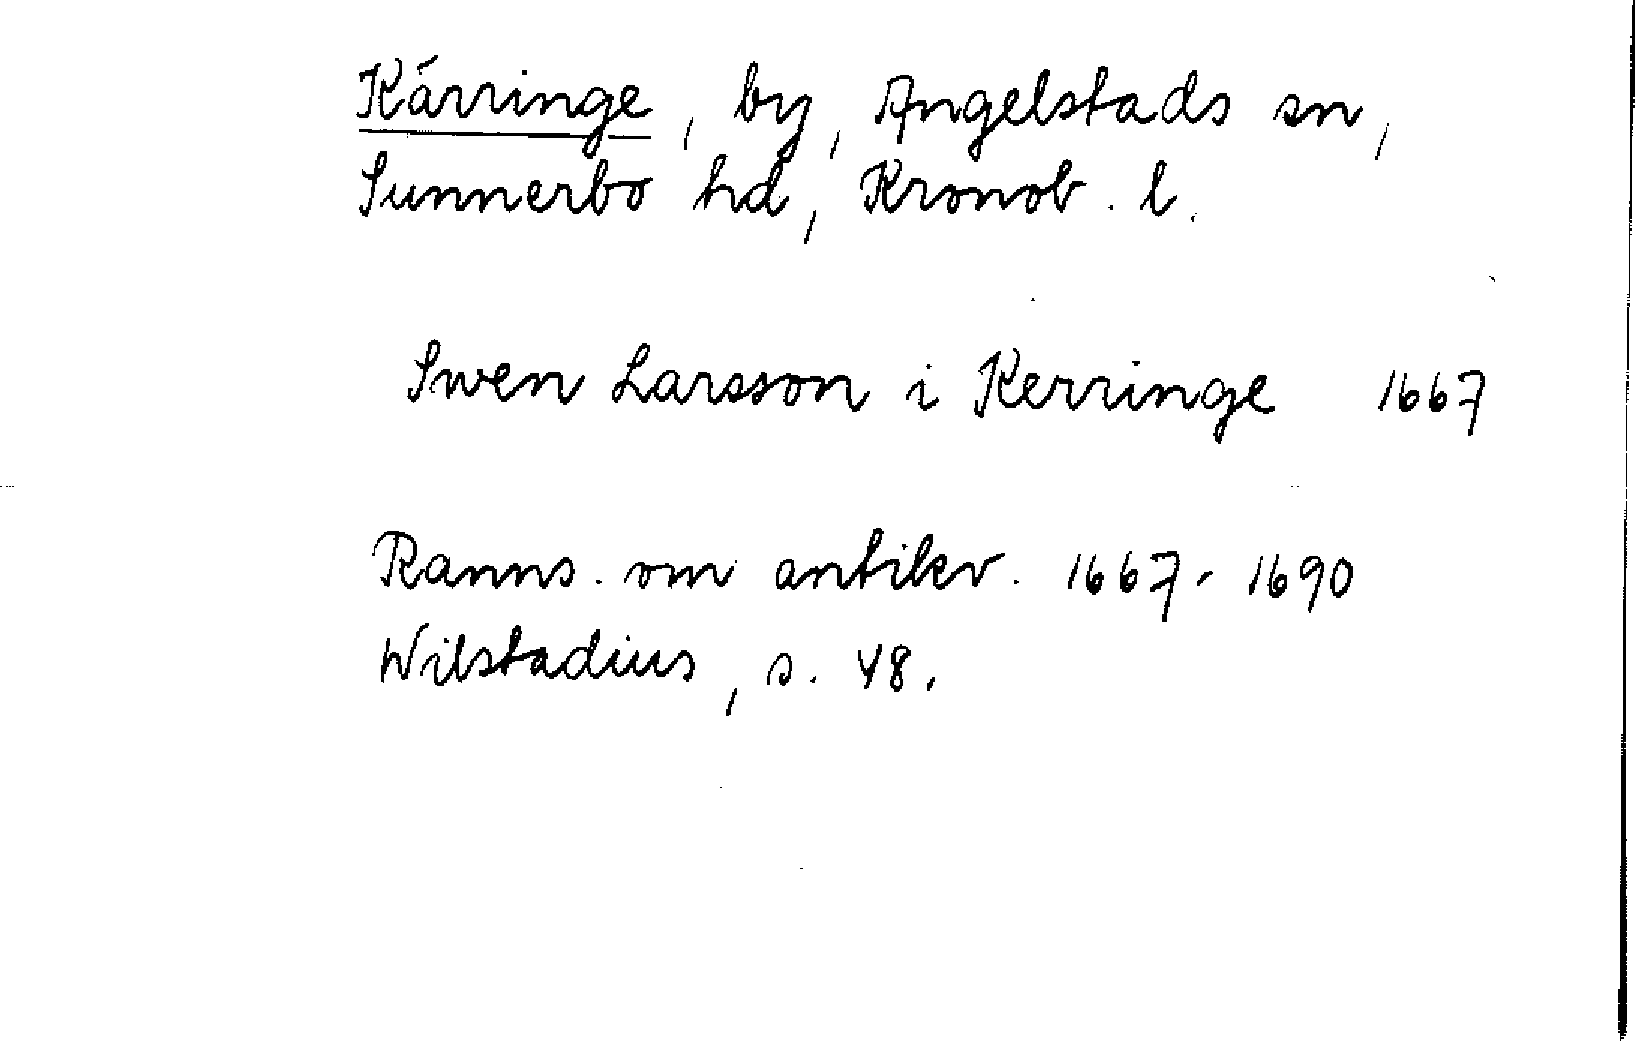 Kärringe, by, Angelstads sn,
Sunnerbo hd, Kronob. l.
Swen Larsson i Kerringe 1667
Ranns. om antikv. 1667-1690
Wilstadius, s. 48.